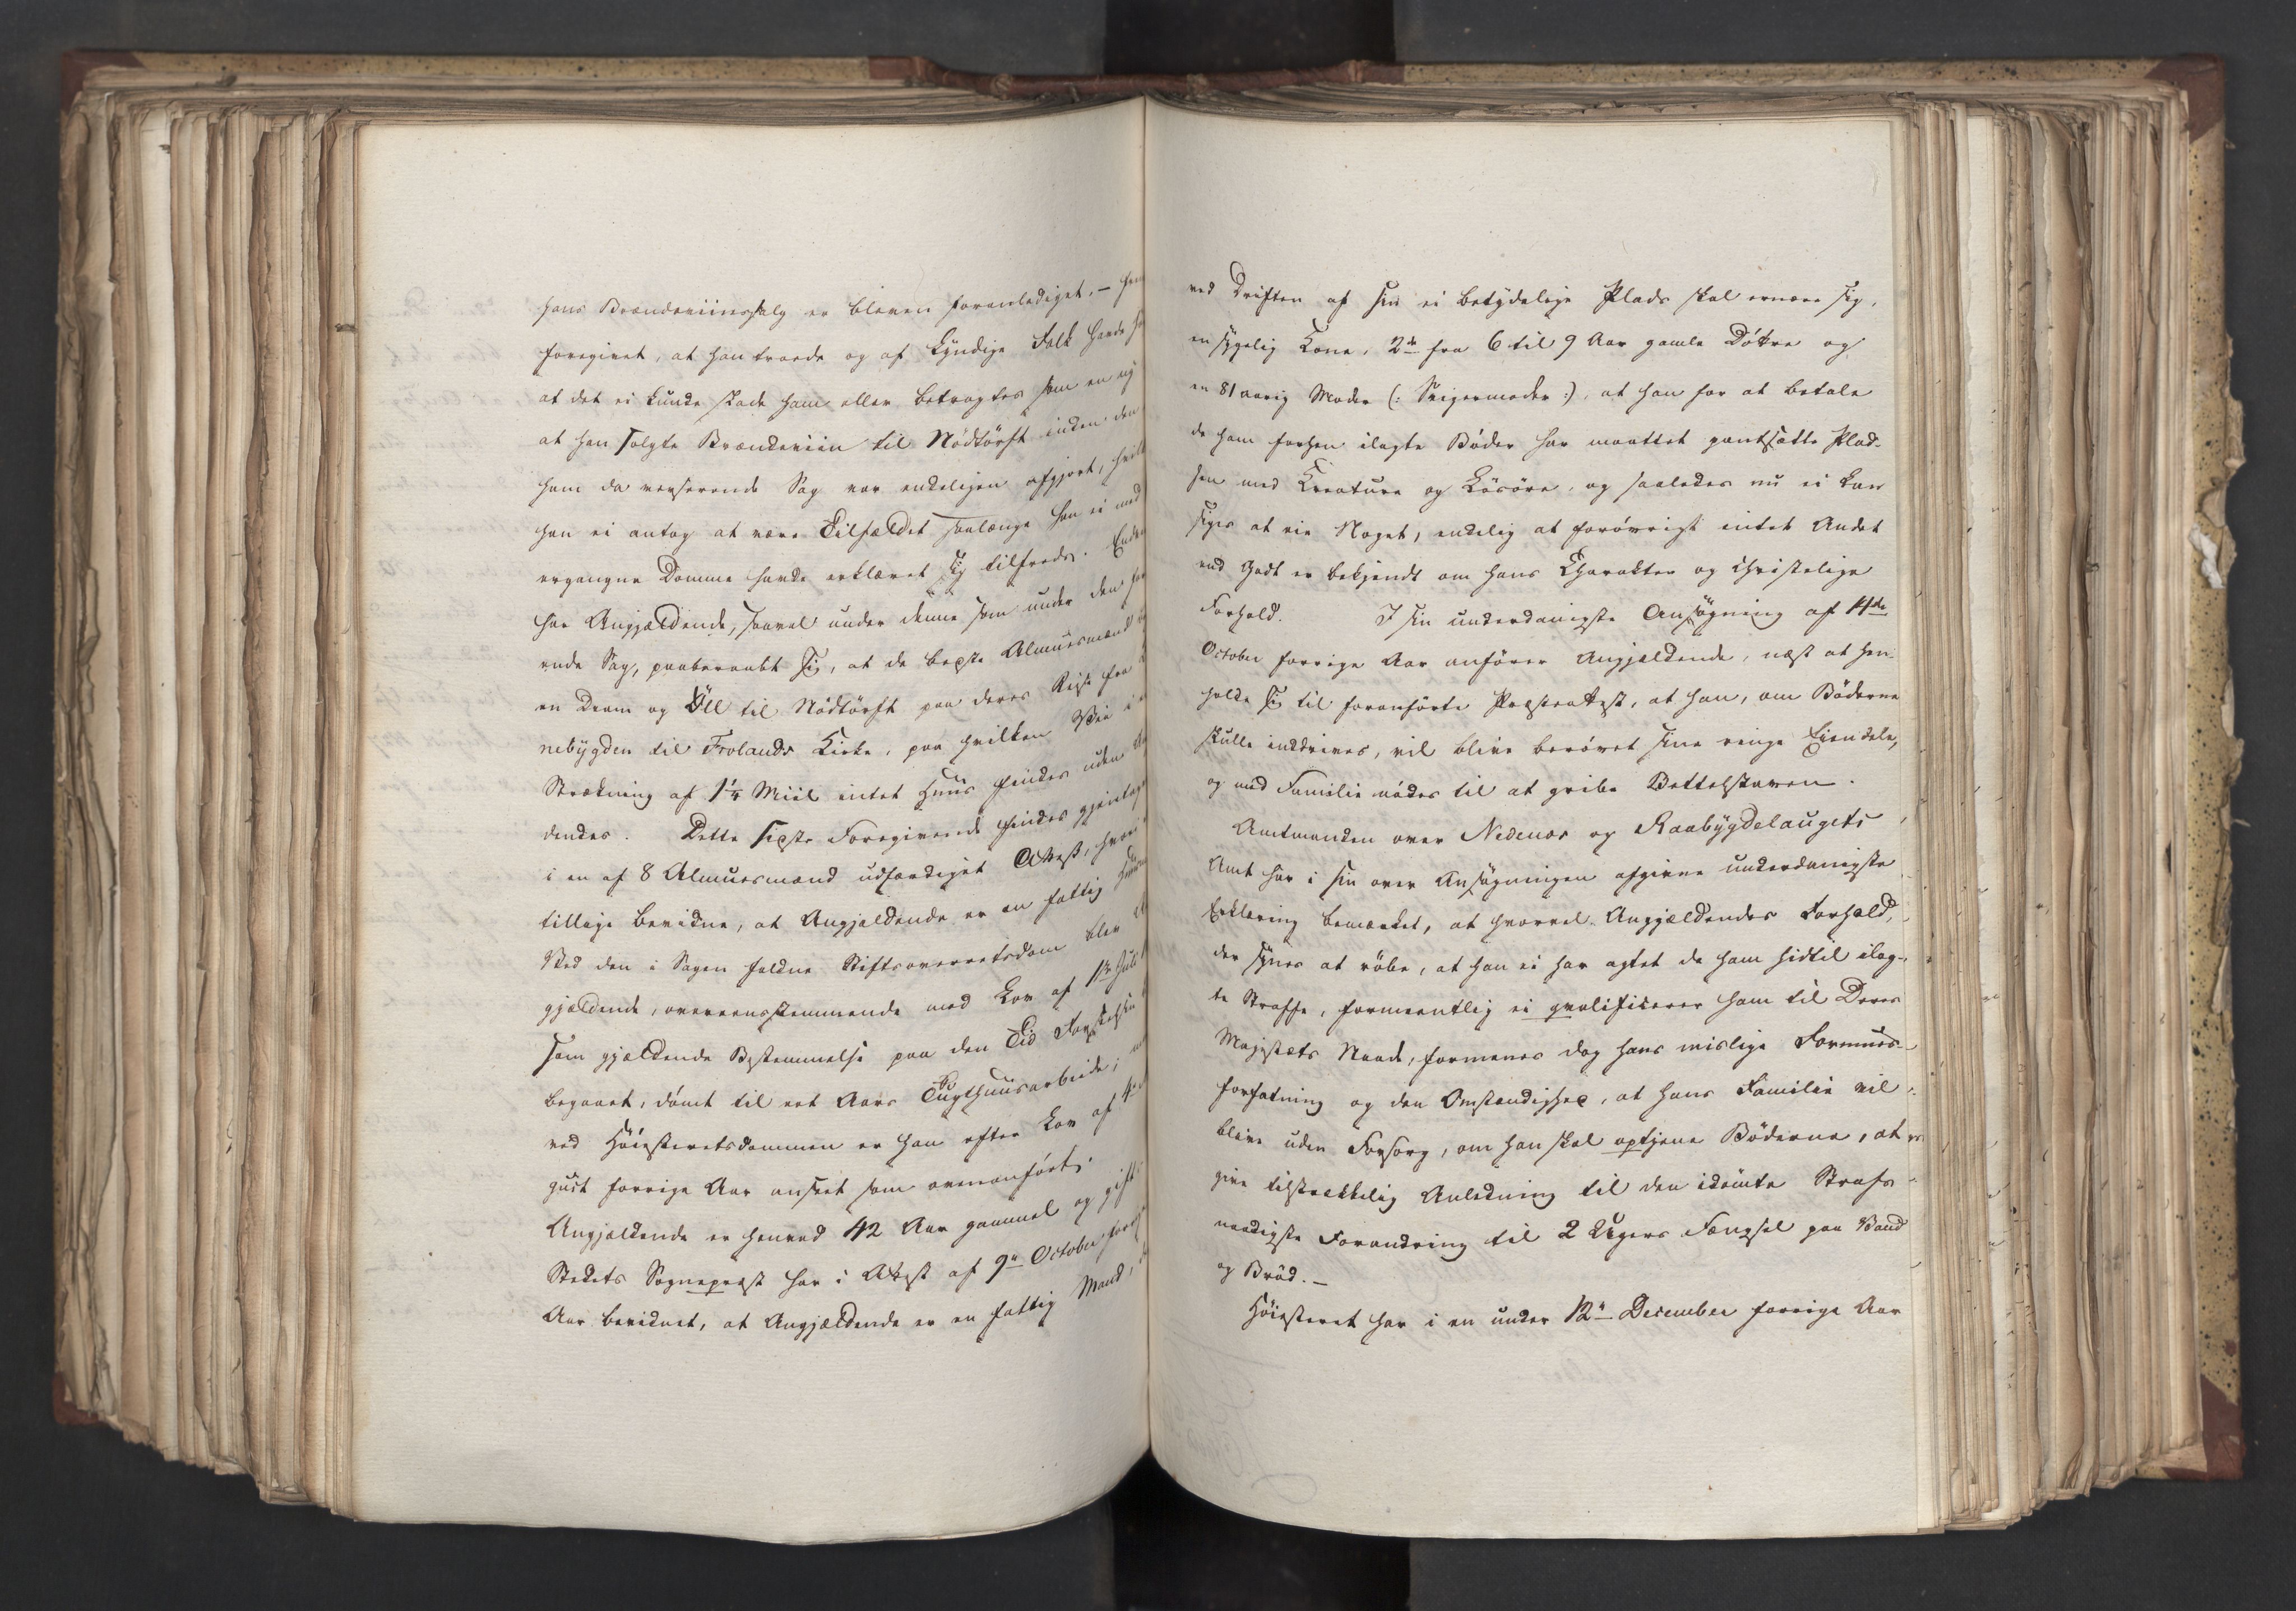 hans Brændeviinssalg er bleven foranlediget. –
foregivet, at han troede og af kyndige Folk havde
at det ei kunde skade ham eller betragtes som en ny
at han solgte Brændeviin til Nödtörft inden den
ham da verserende Sag var endeligen afgjort,
han ei antog at være Tilfældet saalænge han ei med
ergangne Domme havde erklæret sig tilfreds.
har Angjældende, saavel under denne som under den
ende Sag, paaberaabt sig, at de beste Almuesmænd
en Dram og Öll til Nödtörft paa deres Reise fra
nebygden til Frolands Kirke, paa hvilken Vei i
Strækning af 1¼ Miil intet Huus findes uden
dendes. Dette sidste Foregivende findes gjentaget
i en af 8 Almuesmænd udfærdiget Attest, hvori
tillige bevidne, at Angjeldende er en fattig
Ved den i Sagen faldne Stiftsoverretsdom blev
gjældende, overeensstemmende med Lov af 1ste Juli
som gjældende Bestemmelse paa den Tid Forseelsen
begaaet, dömt til eet Aars Tugthuusarbeide;
ved Höiesteretsdommen er han efter Lov af 4de
gust forrige Aar anseet som ovenanfört.
Angjældende er henved 42 Aar gammel og gift.
Stedets Sognepræst har i Attest af 9de October forrige
Aar bevidnet, at Angjældende er en fattig Mand,
ved Driften af sin ei betydelige Plads skal ernære sig,
en sygelig Kone, 2de fra 6 til 9 Aar gamle Döttre og
en 81 aarig Moder (: Svigermoder :), at han for at betale
de ham forhen ilagte Böder har maattet pantsætte Plad-
sen med Kreature og Lösöre, og saaledes nu ei kan
siges at eie Noget, endelig at forövrigt intet Andet
end Godt er bekjendt om hans Charakter og christelige
Forhold. I sin underdanigste Ansögning af 14de
October forrige Aar anförer Angjældende, næst at hen-
holde sig til foranförte Præsteattest, at han, om Böderne
skulle inddrives, vil blive berövet sine ringe Eiendele,
og med Familie nödes til at gribe Bettelstaven.
Amtmanden over Nedenes og Raabygdelaugets
Amt har i sin over Ansögningen afgivne underdanigste
Erklæring bemærket, at hvorvel Angjældendes Forhold,
der synes at röbe, at han ei har agtet de ham hidtil ilag-
te Straffe, formeentlig ei qvalificerer ham til Deres
Majestæts Naade, formenes dog hans mislige Formues-
forfatning og den Omstændighed, at hans Familie vil
blive uden Forsorg, om han skal aftjene Böderne, at
give tilstrækkelig Anledning til den idömte Strafs
naadigste Forandring til 2 Ugers Fængsel paa Vand
og Bröd. –
Höiesteret har i en under 12te December forrige Aar